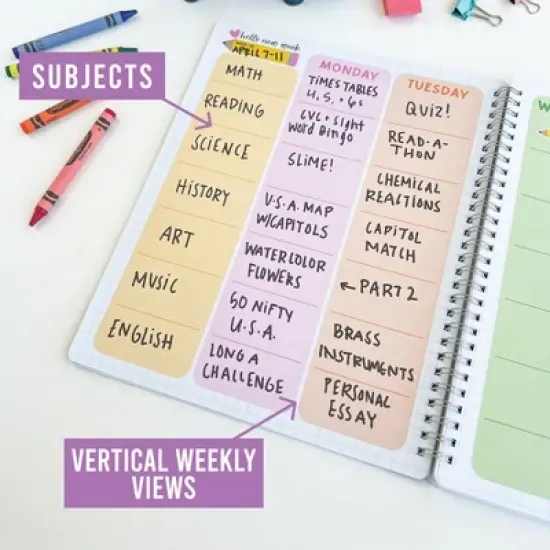 SUBJECTS
hello new week
APRIL 7-11
MATH
READING
SCIENCE
HISTORY
ART
MUSIC
ENGLISH
MONDAY
TIMES TABLES
4, 5, + 6s
CVC + Sight
Word Bingo
SLIME!
U.S.A. MAP
W/CAPITOLS
WATERCOLOR
FLOWERS
50 NIFTY
U.S.A.
LONG A
CHALLENGE
TUESDAY
QUIZ!
READ-A-
THON
CHEMICAL
REACTIONS
CAPITOL
MATCH
←PART 2
BRASS
INSTRUMENTS
PERSONAL
ESSAY
W
VERTICAL WEEKLY
VIEWS